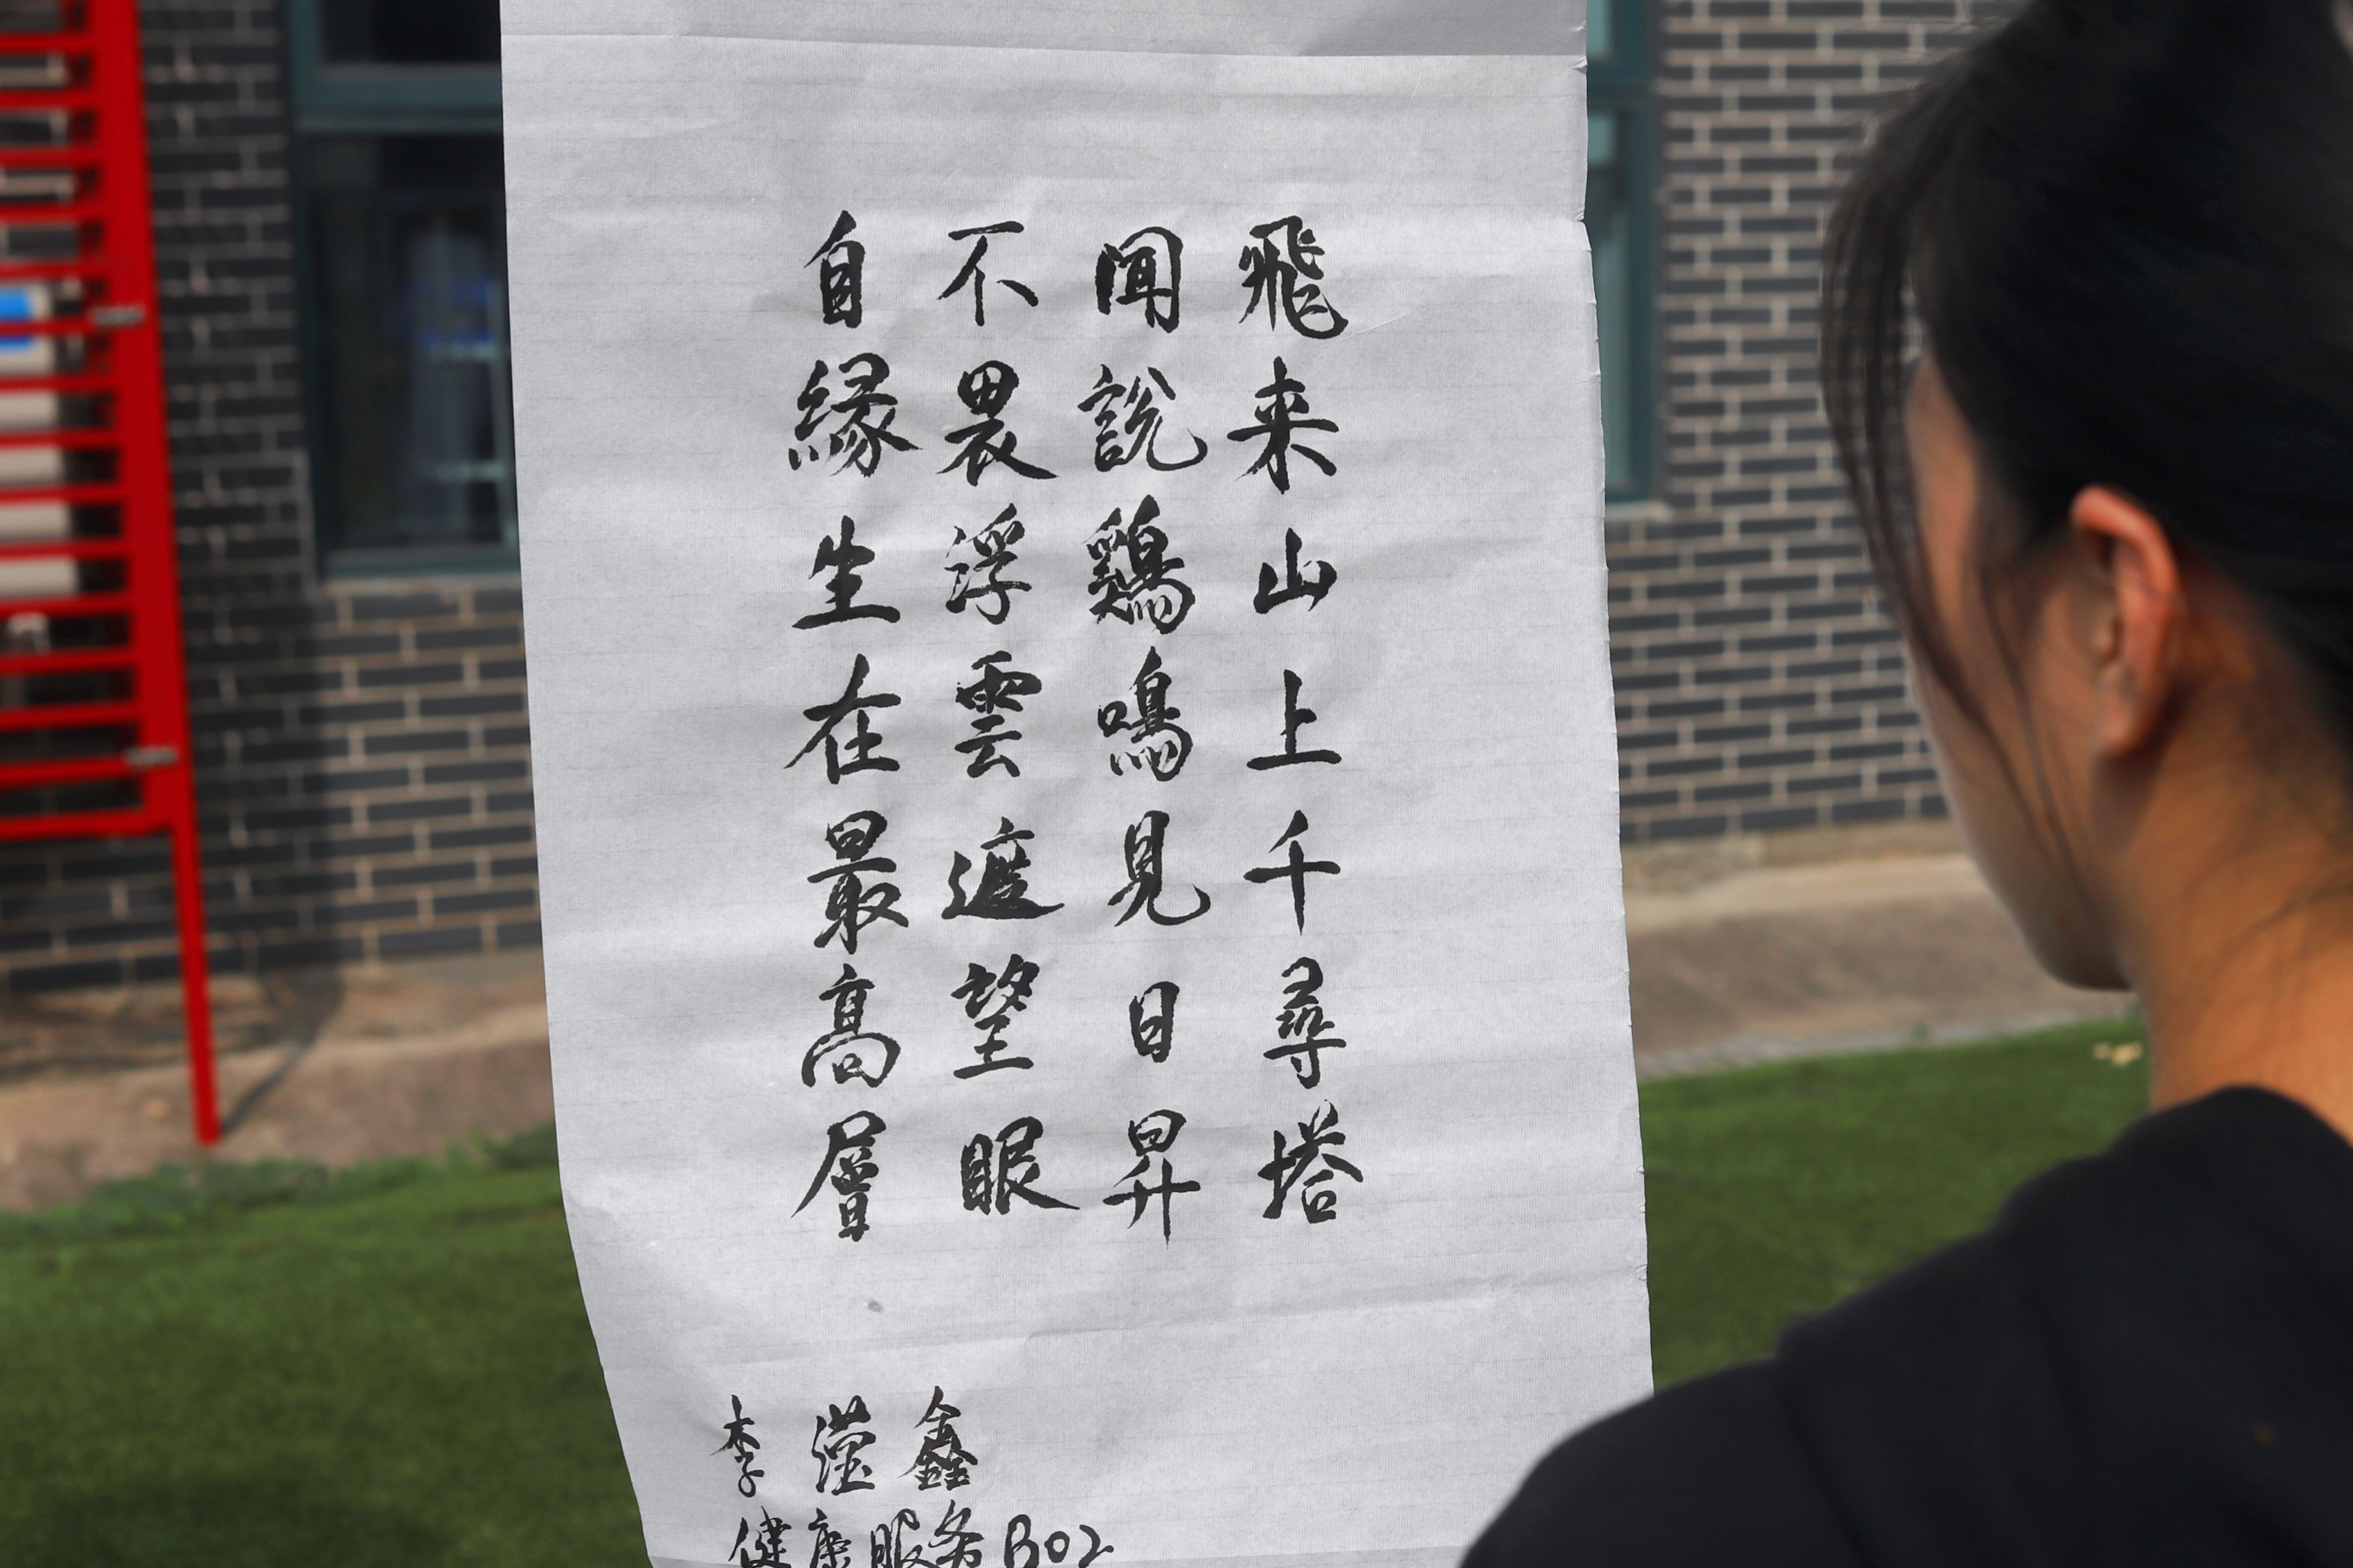 飛来山上千尋塔
闻説鷄鳴見日昇
不畏浮雲遮望眼
自緣生在最高層
李滢鑫
健康服务B02